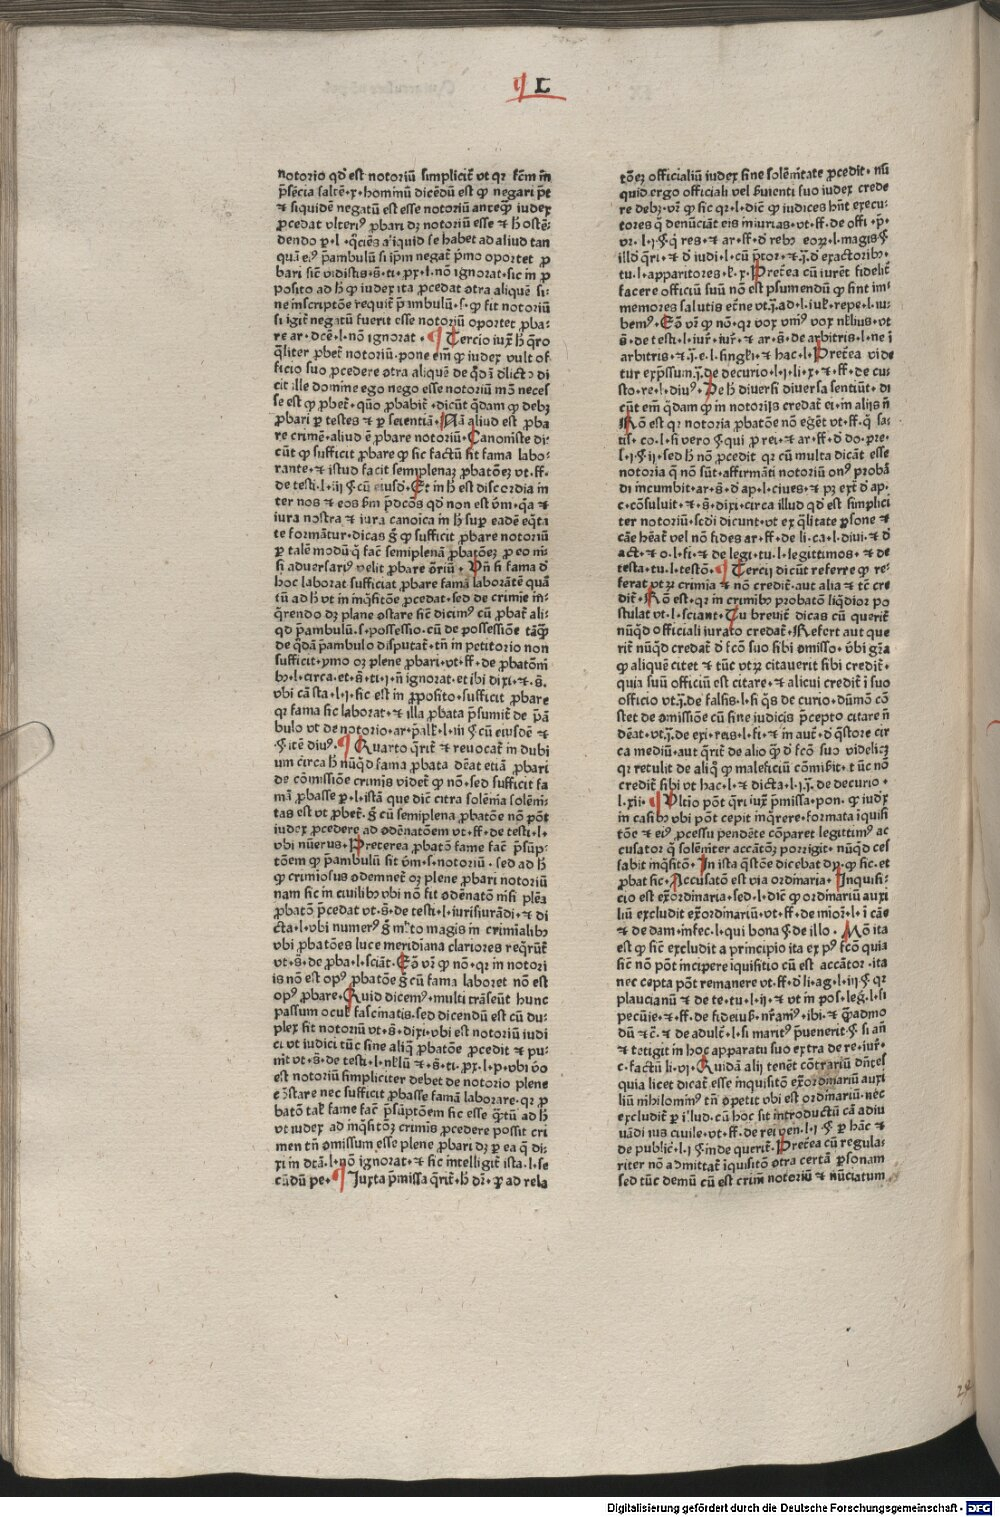 ¶ L
notorio qd̕ est notoriū simplicit̃ vt qr fc̃m in
p̃sēcia saltē·x·hominū dicēdū est ꝙ negari põt
⁊ siquidē negatū est esse notoriū anteqꝫ iudex
ꝓcedat vlteri⁹ ꝓbari dꝫ notoriū esse ⁊ h̕ ostē⸗
dendo ꝑ·l·q̃ciēs aliquid se habet ad aliud tan
quā ei⁹ p̃ambulū si ip̃m negat̃ p̃mo oportet ꝓ
bari sic̃ vidistis·s̃·ti·ꝓx·l·nō ignorat·sic in ꝓ
posito ad h̕ ꝙ iudex ita ꝓcedat ↄtra aliquē si⸗
ne inscriptōe requirit̃ p̃ambulū·s·ꝙ sit notoriū
si igit̃ negatū fuerit esse notoriū oportet ꝓba⸗
re ar·dcē·l·nō ignorat· ¶ Tercio iux̃ h̕ q̃ro
q̃liter ꝓbet̃ notoriū·pone em̃ ꝙ iudex vult of
ficio suo ꝓcedere ↄtra aliquē de q̃dā dl̕icto di
cit ille domine ego nego esse notoriū mō neces
se est ꝙ ꝓbet̃·quō ꝓbabit̃·dicūt q̃dam ꝙ debꝫ
ꝓbari ꝑ testes ⁊ ꝑ scientiā·Nā aliud est ꝓba
re crimē·aliud ē ꝓbare notoriū·Canoniste di⸗
cūt ꝙ sufficit ꝓbare ꝙ sic factū sit fama labo⸗
rante·⁊ istud facit semiplenaꝫ ꝓbatōeꝫ vt·ff·
de testi·l·iij §cū eiusd̕·Et in h̕ est discordia in
ter nos ⁊ eos v̕m p̃dcōs qd̕ non est v̕m·q̃a ⁊
iura nostra ⁊ iura canoica in h̕ suꝑ eadē eq̃ta
te formātur·dicas g̃ ꝙ sufficit ꝓbare notoriū
ꝑ talē modū q̃ fac̃ semiplenā ꝓbatōeꝫ ꝓ eo ni⸗
si adversari⁹ velit ꝓbare ↄ̃riū· Vn̄ si fama d̕
hoc laborat sufficiat ꝓbare famā laborātē quā
tū ad h̕ vt in inq̃sitōe ꝓcedat·sed de crimie in⸗
q̃rendo dꝫ plane ↄstare sic̃ dicim⁹ cū ꝓbat̃ ali⸗
qd̕ p̃ambulū·s·possessio·cū de possessiōe tāqꝫ
de q̃dā p̃ambulo disputat̃·tn̄ in petitorio non
sufficit·ymo ꝫ plene ꝓbari·vt·ff·de ꝓbatōni
bꝫ·l·circa·et·s̃·ti·j·n̄ ignorat·et ibi dixi·⁊·s̃·
vbi cā sta·l·j·sic est in ꝓposito·sufficit ꝓbare
qr fama sic laborat·⁊ illa ꝓbata p̃sumit̃ de p̃ā
bulo vt de notorio·ar·p̃all̕·l·iij §cū eiusdē ⁊
§itē diu⁹·¶ Quarto q̃rit̃ ⁊ reuocat̃ in dubi
um circa h̕ nūqd̕ fama ꝓbata dēat etiā ꝓbari
de cōmissiōe crimis videt̃ ꝙ nō·sed sufficit fa
mā ꝓbasse ꝑ·l·istā que dic̃ citra solēnia solēni⸗
tas est vt ꝓbet̃·g̃ cū semiplena ꝓbatōe nō põt
iudex ꝓcedere ad ↄdēnatōem vt·ff·de testi·l·
vbi nūerus·Preterea ꝓbatō fame fac̃ p̃sūp⸗
tōem ꝙ p̃ambulū sit v̕m·s·notoriū·sed ad h̕
ꝙ crimiosus ↄdemnet̃ ꝫ plene ꝓbari notoriū
nam sic in ciuilibꝫ vbi nō fit ↄdēnatō nisi plēa
ꝓbatō p̃cedat vt·s̃·de testi·l·iurisiurādi·⁊ di
cta·l·vbi numer⁹ g̃ ml̕to magis in crimialibꝫ
vbi ꝓbatōes luce meridiana clariores reqr̃ūt̃
vt·s̃·de ꝓba·l·sciāt̃·Eō vr̃ ꝙ nō·qr in notori
is nō est op⁹ ꝓbatōe g̃ cū fama laboret nō est
op⁹ ꝓbare·Quid dicem⁹·multi trāseūt hunc
passum ocul̕ fascinatis·sed dicendū est cū du⸗
plex sit notoriū vt·s̃·dixi·vbi est notoriū iudi
ci vt iudici tūc sine aliq̃ ꝓbatōe ꝓcedit ⁊ pu⸗
nit̃ vt·s̃·de testi·l·nl̕lū ⁊·s̃·ti·ꝓx·l·p·vbi v̕o
est notoriū simpliciter debet de notorio plene
ↄstare nec sufficit ꝓbasse famā laborare·qr ꝓ
batō tal̕ fame fac̃ p̃sūptōem sic esse q̃tū ad h̕
vt iudex ad inq̃sitōꝫ crimis ꝓcedere possit cri
men tn̄ ↄmissum esse plene ꝓbari dꝫ ꝑ ea q̃ di⸗
xi in dcā·l·nō ignorat·⁊ sic intelligit̃ ista·l·se
cūdū pe·¶ Iuxta p̃missa q̃rit̃·h̕ dr̃·ꝙ ad rela
tōeꝫ officialiū iudex sine solēnitate ꝓcedit·nū
quid ergo officiali vel s̕uienti suo iudex crede
re debꝫ·vr̃ ꝙ sic qr·l·dic̃ ꝙ iudices hn̄t execu⸗
tores q̃ denūciāt eis iniurias·vt·ff·de offi·p̃·
vr·l·j·§q̃ res·⁊ ar·ff·d̕ rebꝫ eoꝝ·l·magis §
illd̕ q̃ri·⁊ d̕ iudi·l·cū p̃tor·⁊·j̃·d̕ exactoribꝫ·
tu·l·apparitores·l̕·x·Pret̃ea cū iurēt fidelit̃
facere officiū suū nō est p̃sumendū ꝙ sint im⸗
memores salutis et̃ne vt·j̃·ad·l·iul̕·repe·l·iu⸗
bem⁹·Eō vr̃ ꝙ nō·qr vox vni⁹ vox nl̕lius·vt
s̃·de testi·l·iur̃·iur̃·⁊ ar·s̃·de arbitris·l·ne ī
arbitris·⁊·j̃·e·l·singl̕i·⁊ hac·l·Pret̃ea vide
tur exp̃ssum·j̃·de decurio·l·j·li·x·⁊·ff·de cu⸗
sto·re·l·diu⁹·De h̕ diversi diversa sentiūt·di
cūt em̃ q̃dam ꝙ in notorijs credat̃ ei·in alijs n̄
Rō est qr notoria ꝓbatōe nō eget̃ vt·ff·q̃ sa⸗
tis·co·l·si vero §qui ꝓ rei·⁊ ar·ff·d̕ do·pre⸗
l·j·§ij·sed h̕ nō ꝓcedit qr cū multa dicāt̃ esse
notoria q̃ nō sūt·affirmāti notoriū on⁹ proba
di incumbit·ar·s̃·d̕ ap·l·ciues·⁊ pꝫ ext̃ d̕ ap·
c·cōsuluit·⁊·s̃·dixi·circa illud qd̕ est simplici
ter notoriū·scd̕i dicunt·vt ex q̃litate ꝑsone ⁊
cāe hēat̃ vel nō fides ar·ff·de li·ca·l·diui·⁊ d̕
act·⁊ o·l·fi·⁊ de legi·tu·l·legittimos·⁊ de
testa·tu·l·testō·¶ Tercij dicūt referre ꝙ re⸗
ferat̃ vtꝝ crimia ⁊ nō credit̃·aut alia ⁊ tc̃ cre
dit̃·Rō est·qr in crimibꝫ probatōm liq̃dior po
stulat̃ vt·l·sciant·Tu breuit̃ dicas cū querit̃
nūqd̕ officiali iurato credat̃·Refert aut que
rit̃ nūqd̕ credat̃ d̕ fcō suo sibi ↄmisso·vbi gr̃a
ꝙ aliquē citet ⁊ tūc vtꝝ citauerit sibi credit̃·
quia suū officiū est citare·⁊ alicui credit̃ ī suo
officio vt·j̃·de falsis·l·si q̃s de curio·dūmō cō
stet de ↄmissiōe cū sine iudicis p̃cepto citare n̄
dēat·vt·j̃·de exi·reis·l·fi·⁊ in aut̃·d̕ q̃store cir
ca mediū·aut q̃rit̃ de alio ꝙ d̕ fcō suo videlicꝫ
qr retulit de aliq̃ ꝙ maleficiū cōmisit·t̃ ūc nō
credit̃ sibi vt hac·l·⁊ dicta·l·j·j̃·de decurio·
l·xij·¶ Vltīo põt q̃ri iux̃ p̃missa·pon·ꝙ iudex
in casibꝫ vbi põt cepit inq̃rere·formata īquisi
tōe ⁊ ei⁹ ꝓcessu pendēte cōparet legittim⁹ ac
cusator q̃ solēniter accātōꝫ porrigit·nūqd̕ ces
sabit inq̃sitō·In ista q̃stōe dicebat dp̃·ꝙ sic·et
ꝓbat sic·Accusatō est via ordinaria·Inquisi⸗
cio est ex̃ordinaria·sed·l·dic̃ ꝙ ordinariū auxi
liū excludit ex̃ordinariū·vt·ff·de mīor̃·l·ī cāe
⁊ de dam·infec·l·qui bona §de illo·Mō ita
est ꝙ sic̃ excludit a principio ita ex p⁹ fcō quia
sic̃ nō põt incipere īquisitio cū est accātor·ita
nec cepta põt remanere vt·ff·d̕ li·ag·l·iij § qr
plaucianū ⁊ de te·tu·l·ij·⁊ vt in pos·leg̃·l·si
pecūie·⁊·ff·de fideiuss̕·nr̃am⁹·ibi·⁊ q̃admo
dū ⁊c̃·⁊ de adult̃·l·si marit⁹ p̃uenerit·§si an̄
⁊ tetigit in hoc apparatu suo extra de re·iur̃·
c·factū li·vj·Quidā alij tenēt cōtrariū dn̄tes
quia licet dicat̃ esse inquisitō ex̃ordinariū auxi
liū nihilomin⁹ tn̄ ↄpetit vbi est ordinariū·nec
excludit̃ ꝑ illud·cū hoc sit introductū cā adiu
uādi ius civile·vt·ff·de rei ven·l·j § ꝑ hāc ⁊
de public̃·l·j §inde querit̃·Pret̃ea cū regula⸗
riter nō admittat̃ īquisitō ↄtra certā ꝑsonam
sed tūc demū cū est crim̄ notoriū ⁊ nūciatum
24
Digitalisierung gefördert durch die Deutsche Forschungsgemeinschaft · DFG